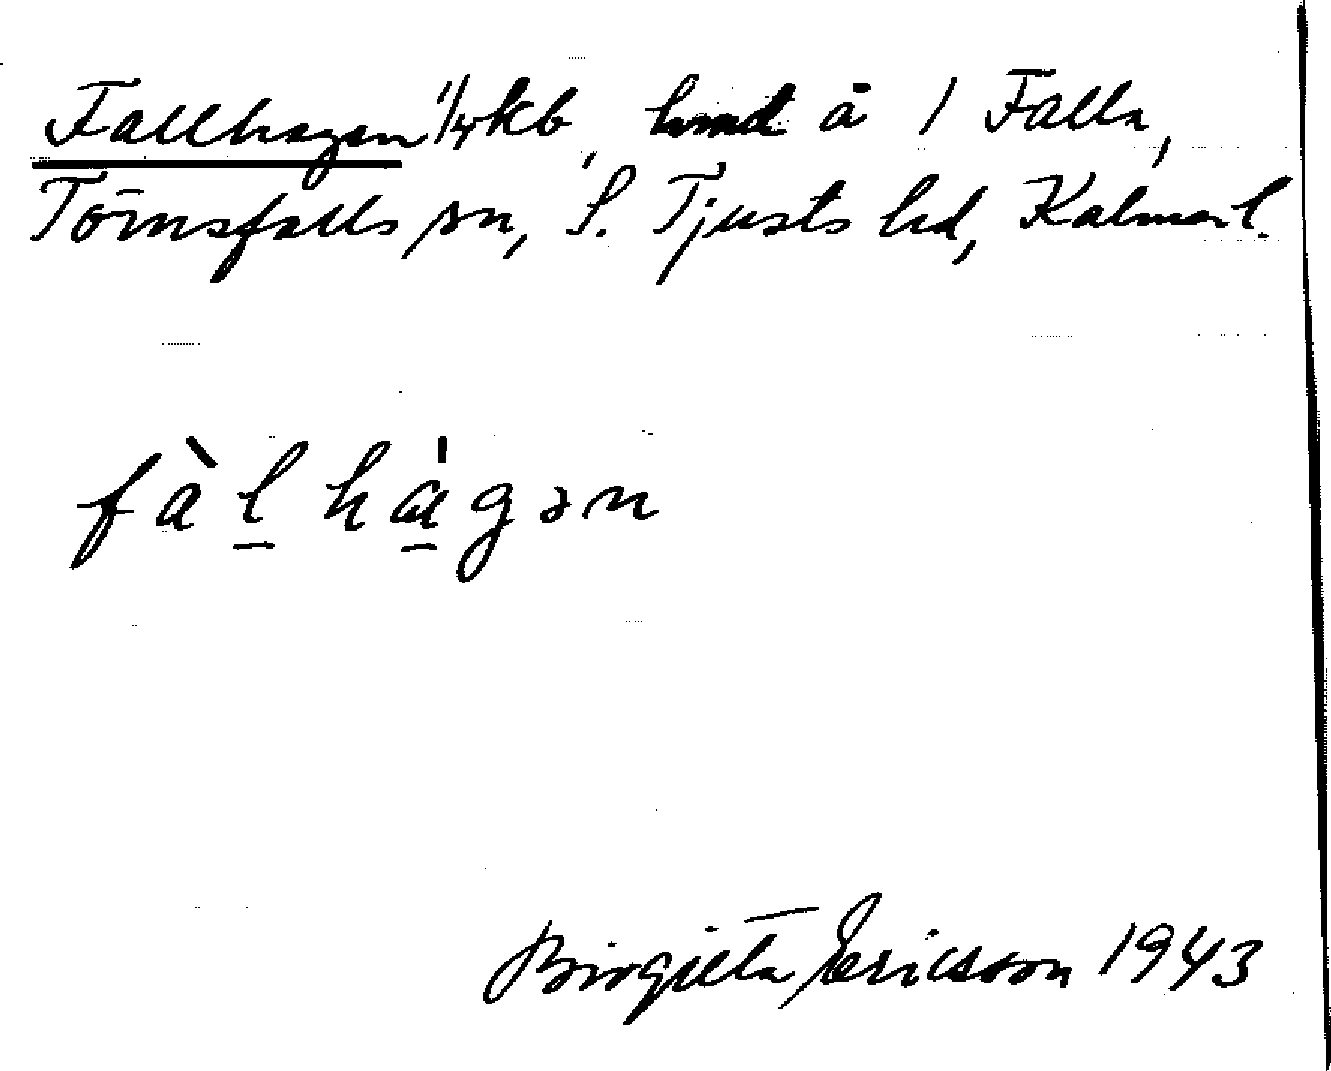 Fallhagen 1/4 kb, hmd å 1 Falla,
Törnsfalls sn, S. Tjusts hd, Kalmar l.
fàl̲hɑ̲̍gən
Birgitta Ericsson 1943